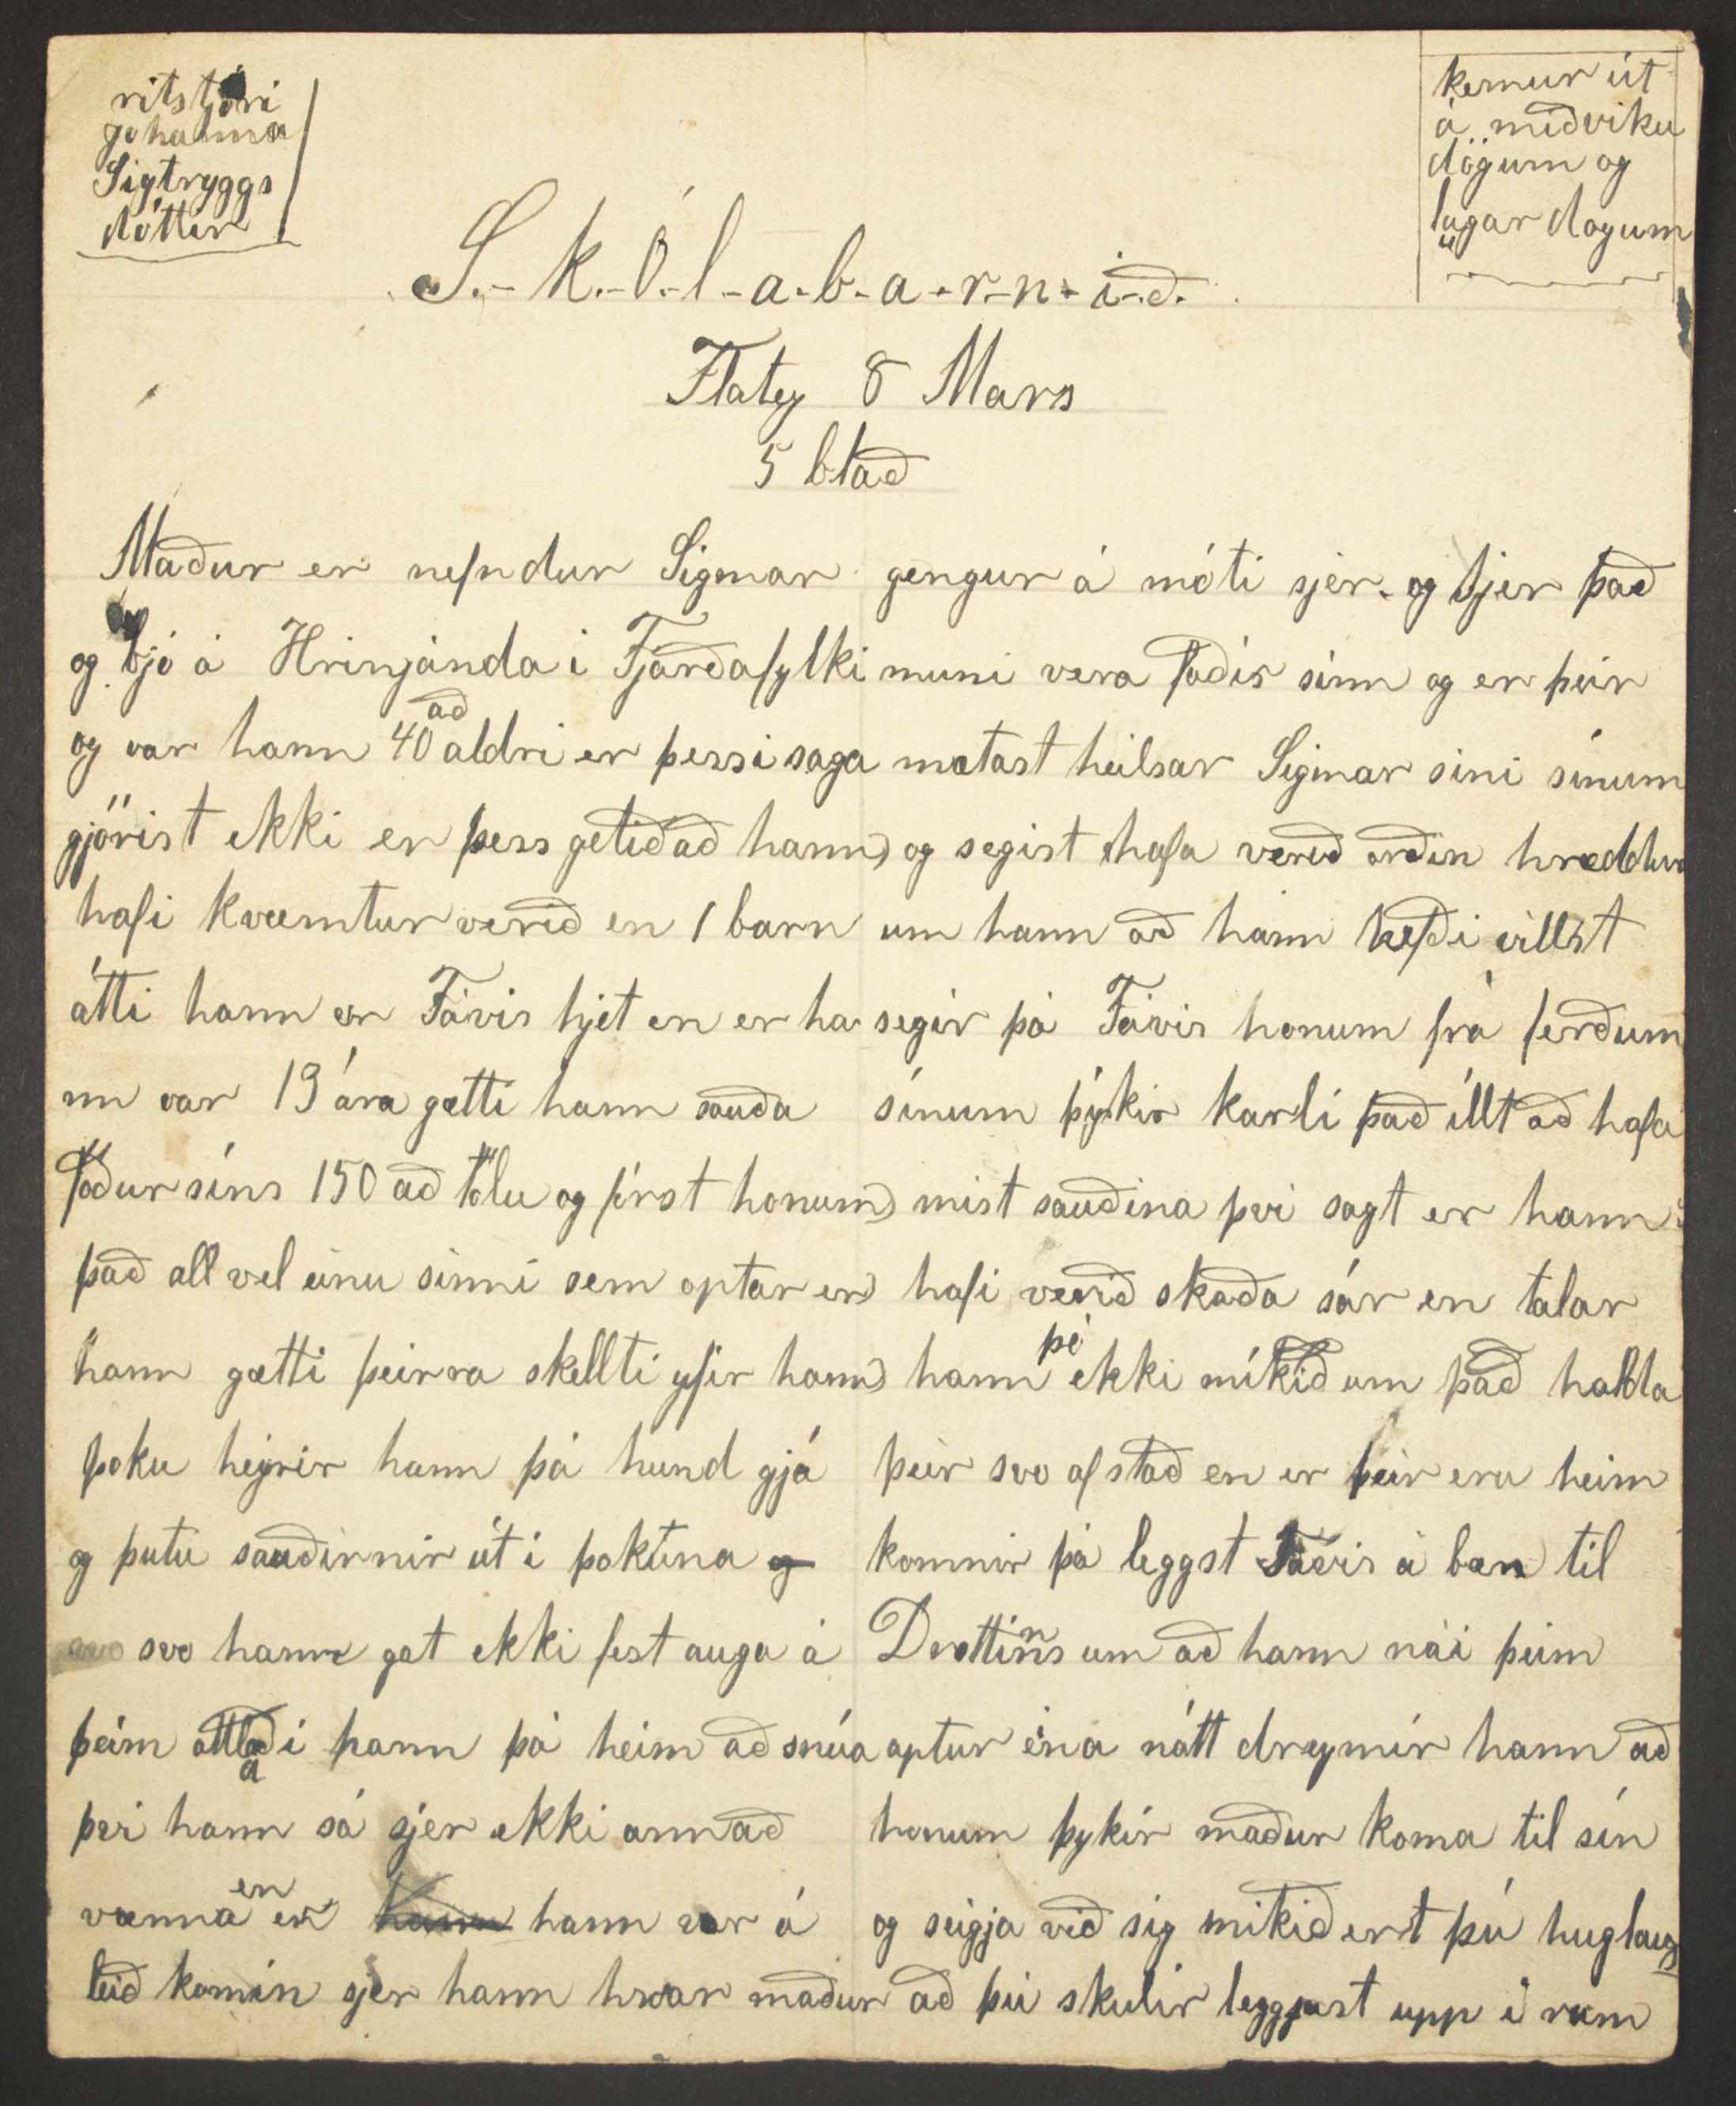 ritstjóri
Jóhanna
Sigtryggs
dóttir
kemur út
á miðviku
dögum og
laugar dogum
S.-k.-ó.-l-a-b-a-r-n-i-ð.
Flatey 8 Mars
5 blað
Maður er nefndur Sigmar
og bjó á Hrinjánda í Fjarðafylki
og var hann 40 að aldri er þessi saga
gjörist ekki er þess getið að hann
hafi kvæmtur verið en 1 barn
átti hann er Fávis hjet en er ha
nn var 19 ára gætti hann sauða
föður síns 150 að tölu og first honum
það all vel einu sinni sem optar er
hann gætti þeirra skellti yfir hann
þoku heyrir hann þá hund gjá
og þutu sauðirnir út í þokuna og
svo svo hann gat ekki fest auga á
þeim ættlaði hann þá heim að snúa
því hann sá sjer ekki annað
vænna en hann hann var á
leið komin sjer hann hvar maður
gengur á móti sjer og sjer það
muni vera faðir sinn og er þeir
mætast heilsar Sigmar sini sínum
og segist hafa verið orðin hræddur
um hann að hann hefði villst
segir þá Fávis honum frá ferðum
sínum þykir karli það íllt að hafa
mist sauðina því sagt er hann
hafi verið skaða sár en talar
hann þó ekki mikið um það halda
þeir svo af stað en er þeir eru heim
komnir þá leggst Fávis á bæn til
Drottins um að hann nái þeim
aptur eina nátt dreymir hann að
honum þykir maður koma til sín
og seigja við sig mikið ert þú huglaus
að þú skulir leggjast upp í rúm